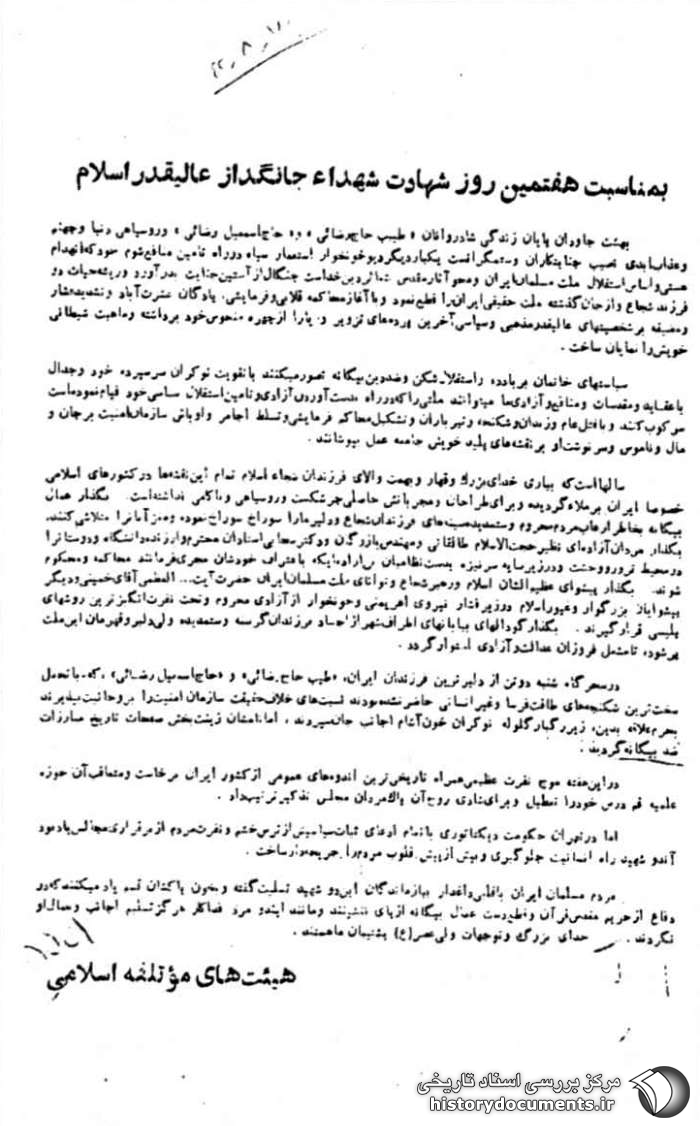 ۴۲٫۸٫۱۰
بمناسبت هفتمین روز شهادت شهداء جانگداز عالیقدر اسلام
بهئت جاوران پایان زندگی شادروانان « طیب حاج رضائی » و« حاج اسمعیل رضائی » وروسیاهی دنیا وجهنم
وعذاب ابدی نصیب جنایتکاران وستمگرانست یکبار دیگر دیو خونخوار استعمار سیاه در راه تامین منافع شوم خود که انهدام
هستی و اساس استقلال ملت مسلمان ایران ومحو آثار مقدس تمدن دین خداست چنگال از آستین جنایت بدر آورد وریشه حیات دو
فرزند شجاع و از جان گذشته ملت حقیقی ایران را قطع نمود وبا آغاز محاکمه قلابی و فرمایشی، پادگان عشرت آباد وتشدید فشار
ومضیقه بر شخصیتهای عالیقدر مذهبی وسیاسی آخرین پرده های تزویر و ریا را از چهره منحوس خود برداشته وماهیت شیطانی
خویش را نمایان ساخت .
سیاستهای خانمان بر باد ده و استقلال شکن وضد دین بیگانه تصور میکنند با تقویت نوکران سرسپرده خود وجدال
با عقاید و مقدسات ومنافع و آزادی ها میتوانند ملتی را که در راه بدست آوردن آزادی و تامین استقلال سیاسی خود قیام نموده است
سرکوب کنند و با قتل عام وزندان وشکنجه وتیرباران و تشکیل محاکم فرمایشی وتسلط اجامر و اوباش سازمان امنیت بر جان و
مال وناموس وسرنوشت او بر نقشه های پلید خویش جامه عمل بپوشانند .
سالها است که بیاری خدای بزرگ وقهار وبهمت والای فرزندان شجاع اسلام تمام این نقشه ها در کشورهای اسلامی
خصوصا ایران بر ملاء گردیده و برای طراحان ومجریانش حاصلی جز شکست وروسیاهی وناکامی نداشته است . بگذار عمال
بیگانه بخاطر ارعاب مردم محروم وستمدیده سینه های فرزندان شجاع ودلیر ما را سوراخ سوراخ نموده ومغز آنها را متلاشی کنند.
بگذار مردان آزاده ای نظیر حجت الاسلام طالقانی و مهندس بازرگان ودکتر سحابی استادان محترم و ارزنده دانشگاه ودوستانرا
در محیط ترور و وحشت ودر زیر سایه سرنیزه بدست نظامیان بی اراده ایکه باعتراف خودشان مجری فرمانند محاکمه ومحکوم
شوند . بگذار پیشوای عظیم الشان اسلام ورهبر شجاع وتوانای ملت مسلمان ایران حضرت آیت... العظمی آقای خمینی ودیگر
پیشوایان بزرگوار وغیور اسلام در زیر فشار نیروی اهریمنی وخونخوار از آزادی محروم وتحت نفرت انگیز ترین روشهای
پلیسی قرار گیرند . بگذار گودالهای بیابانهای اطراف شهر از اجساد فرزندان گرسنه وستمدیده ولی دلیر وقهرمان این ملت
پر شود، تا مشعل فروزان عدالت و آزادی استوار گردد .
در سحرگاه شنبه دو تن از دلیر ترین فرزندان ایران، «طیب حاج رضائی» و «حاج اسمعیل رضائی» ، که با تحمل
سخت ترین شکنجه های طاقت فرسا وغیر انسانی حاضر نشده بودند نسبتهای خلاف حقیقت سازمان امنیت را بروحانیت بپذیرند
بجرم علاقه بدین، زیر رگبار گلوله نوکران خون آشام اجانب جان سپردند ، اما نامشان زینت بخش صفحات تاریخ مبارزات
ضد بیگانه گردید .
در این هفته موج نفرت عظیمی همراه تاریخی ترین اندوه های عمومی از کشور ایران برخاست ومتعاقب آن حوزه
علمیه قم درس خود را تعطیل و برای شادی روح آن پاک مردان مجلس تذکیر ترتیب داد .
اما در تهران حکومت دیکتاتوری با تمام ادعای ثبات سیاسیش از ترس خشم و نفرت مردم از برقراری مجالس یادبود
آندو شهید راه انسانیت جلوگیری و بیش از پیش قلوب مردم را جریحه دار ساخت .
مردم مسلمان ایران با قلبی داغدار ببازماندگان این دو شهید تسلیت گفته و بخون پاکشان قسم یاد میکنند که در
دفاع از حریم مقدس قرآن وقطع دست عمال بیگانه از پای ننشینند ومانند ایندو مرد فداکار هرگز تسلیم اجانب وعمال او
نگردند . خدای بزرگ وتوجهات ولی عصر (ع) پشتیبان ماهستند .
هیئت های مؤتلفه اسلامی
مرکز بررسی اسناد تاریخی
historydocuments.ir